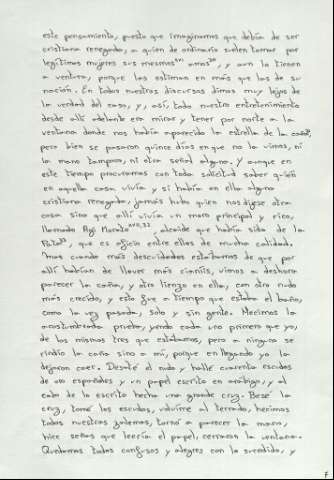 este pensamiento, puesto que imaginamos que debía de ser
cristiana renegada, a quien de ordinario suelen tomar por
legítimas mujeres sus mesmos amos, y aun lo tienen
a ventura, porque las estiman en más que las de su
nación. En todos nuestros discursos dimos muy lejos de
la verdad del caso, y, así, todo nuestro entretenimiento
desde allí adelante era mirar y tener por norte a la
ventana donde nos había aparecido la estrella de la caña,
pero bien se pasaron quince días en que no la vimos, ni
la mano tampoco, ni otra señal alguna. Y aunque en
este tiempo procuramos con toda solicitud saber quién
en aquella casa vivía y si había en ella alguna
cristiana renegada, jamás hubo quien nos dijese otra
cosa sino que allí vivía un moro principal y rico,
llamado Agi Morato, alcaide que había sido de la
Pata, que es oficio entre ellos de mucha calidad.
Mas cuando más descuidados estábamos de que por
allí habían de llover más cianíis, vimos a deshora
parecer la caña, y otro lienzo en ella, con otro nudo
más crecido, y esto fue a tiempo que estaba el baño,
como la vez pasada, solo y sin gente. Hecimos la
acostumbrada prueba, yendo cada uno primero que yo,
de los mismos tres que estábamos, pero a ninguno se
rindió la caña sino a mí, porque en llegando yo la
dejaron caer. Desaté el nudo y hallé cuarenta escudos
de oro españoles y un papel escrito en arábigo, y al
cabo de lo escrito hecha una grande cruz. Besé la
cruz, tomé los escudos, volvíme al terrado, hecimos
todos nuestras zalemas, tornó a parecer la mano,
hice señas que leería el papel, cerraron la ventana.
Quedamos todos confusos y alegres con lo sucedido, y
7